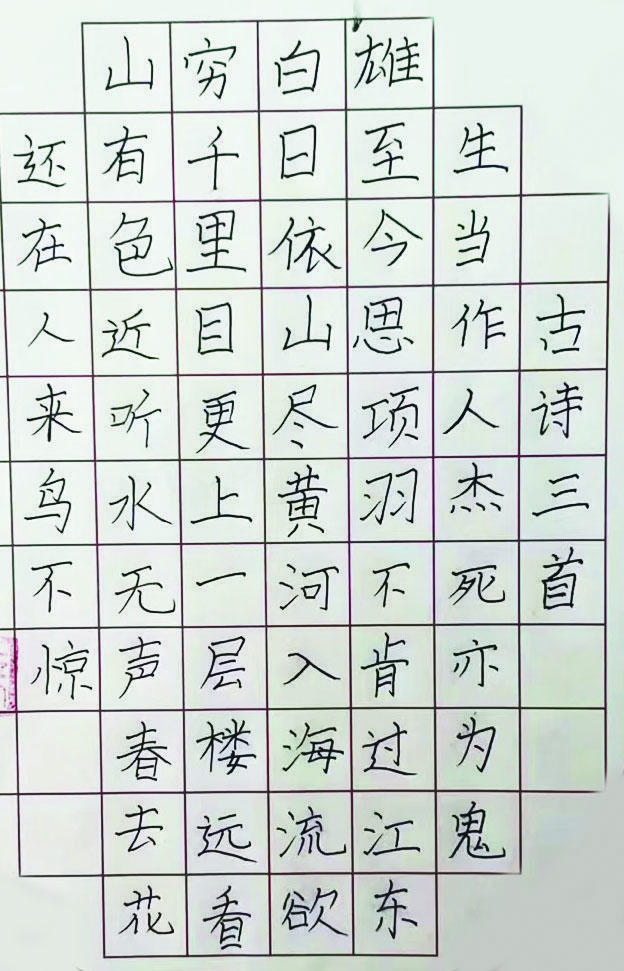 古诗三首
生当作人杰死亦为鬼
雄至今思项羽不肯过江东
白日依山尽黄河入海流欲
穷千里目更上一层楼远看
山有色近听水无声春去花
还在人来鸟不惊